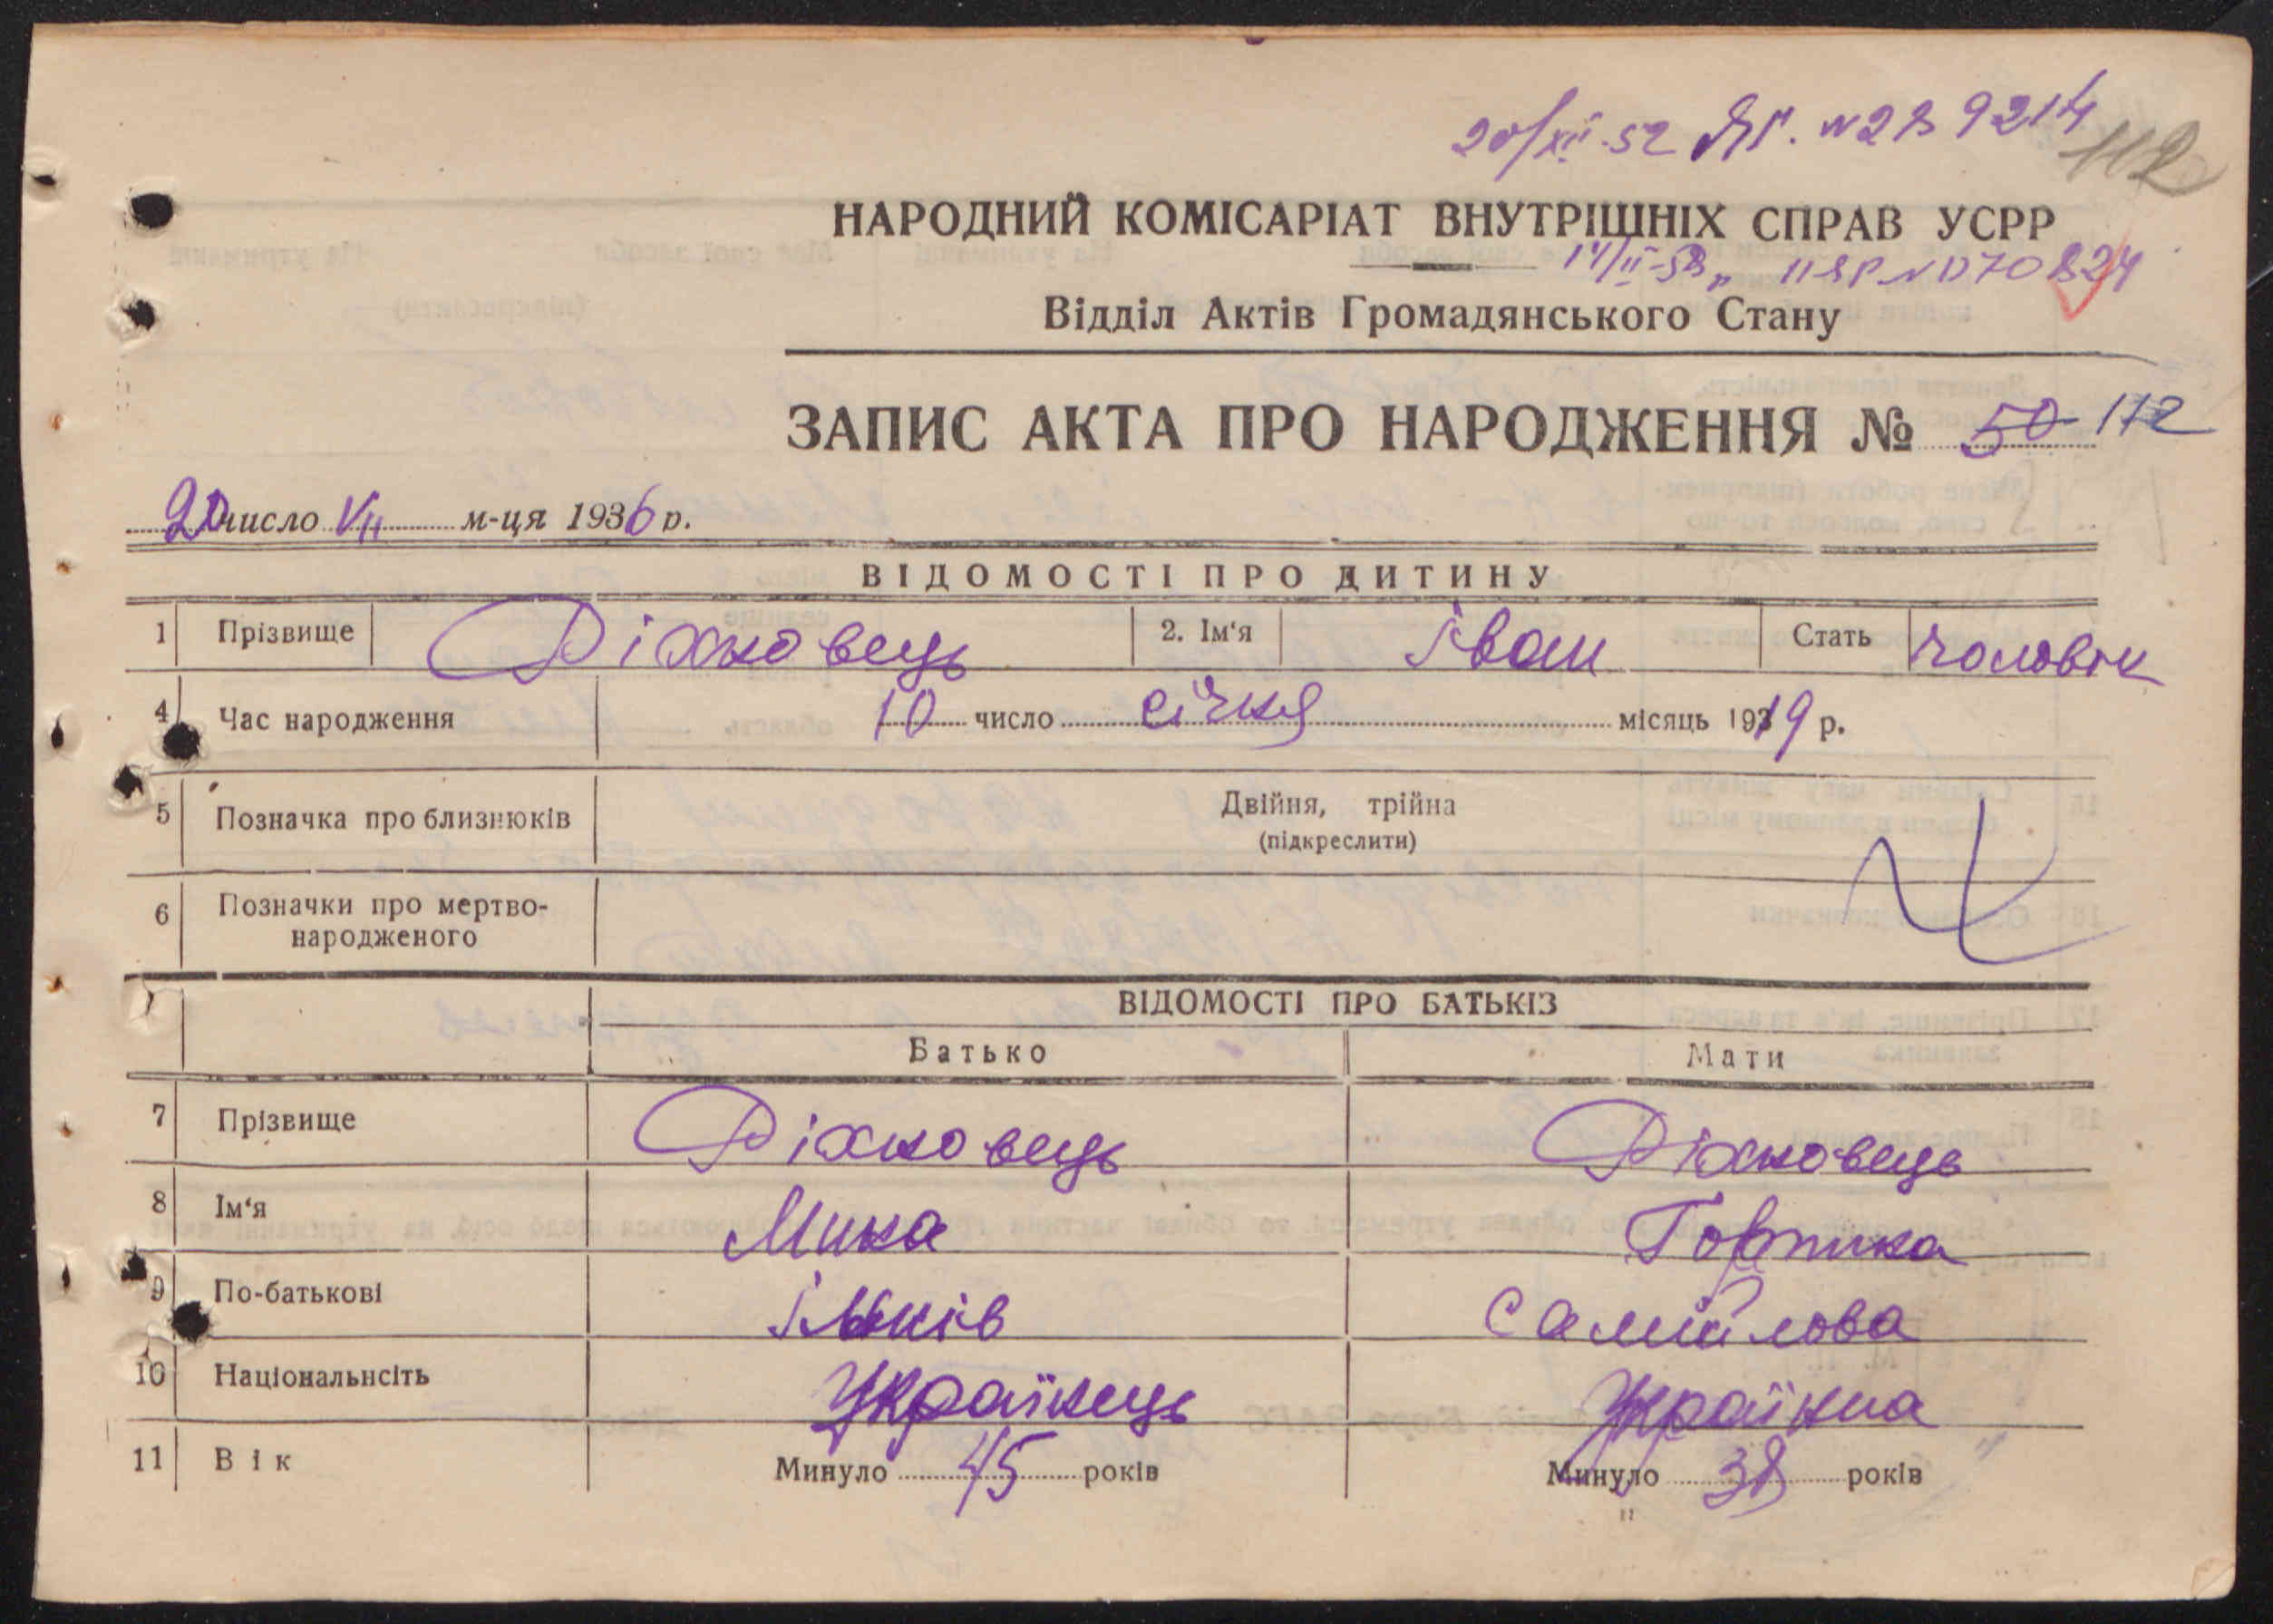 20/XII-52 ЯГ. №2В 9214
112
НАРОДНИЙ КОМІСАРІАТ ВНУТРІШНІХ СПРАВ УСРР
14/II-53
Відділ Актів Громадянського Стану
ЗАПИС АКТА ПРО НАРОДЖЕННЯ № 50 172
20 число VII м-ця 1936 р.
ВІДОМОСТІ ПРО ДИТИНУ
1 Прізвище Діхновець 2. Ім‘я Іван Стать чоловік
4 Час народження 10 число січня місяць 1919 р.
5 Позначка про близнюків Двійня, трійна
(підкреслити)
6 Позначки про мертво-
народженого
ВІДОМОСТІ ПРО БАТЬКІЗ
Батько Мати
7 Прізвище Діхновець Діхновець
8 Ім‘я Мина
9 По-батькові Самійлова
10 Націонaльнсіть Українець Українка
11 Вік Минуло 45 років Минуло 38 років